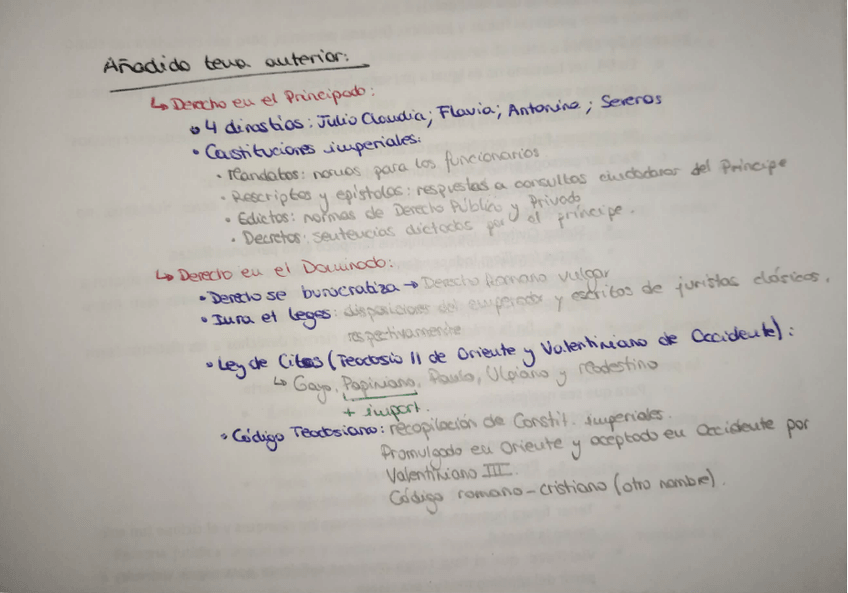 Añadido tema anterior:
↳ Derecho en el Principado:
• 4 dinastías: Julio Claudia; Flavia; Antonina; Severos
• Constituciones imperiales:
• Mandatos: normas para los funcionarios
• Rescriptos y epístolas: respuestas a consultas ciudadanas del Príncipe
• Edictos: normas de Derecho Público y Privado
• Decretos: sentencias dictadas por el príncipe.
↳ Derecho en el Dominado:
• Derecho se burocratiza → Derecho Romano vulgar
• Iura et leges: disposiciones del emperador y escritos de juristas clásicos,
respectivamente
• Ley de Citas (Teodosio II de Oriente y Valentiniano de Occidente):
↳ Gayo, Papiniano, Paulo, Ulpiano y Modestino
+ import.
• Código Teodosiano: recopilación de Constit. imperiales.
Promulgado en Oriente y aceptado en Occidente por
Valentiniano III.
Código romano-cristiano (otro nombre).